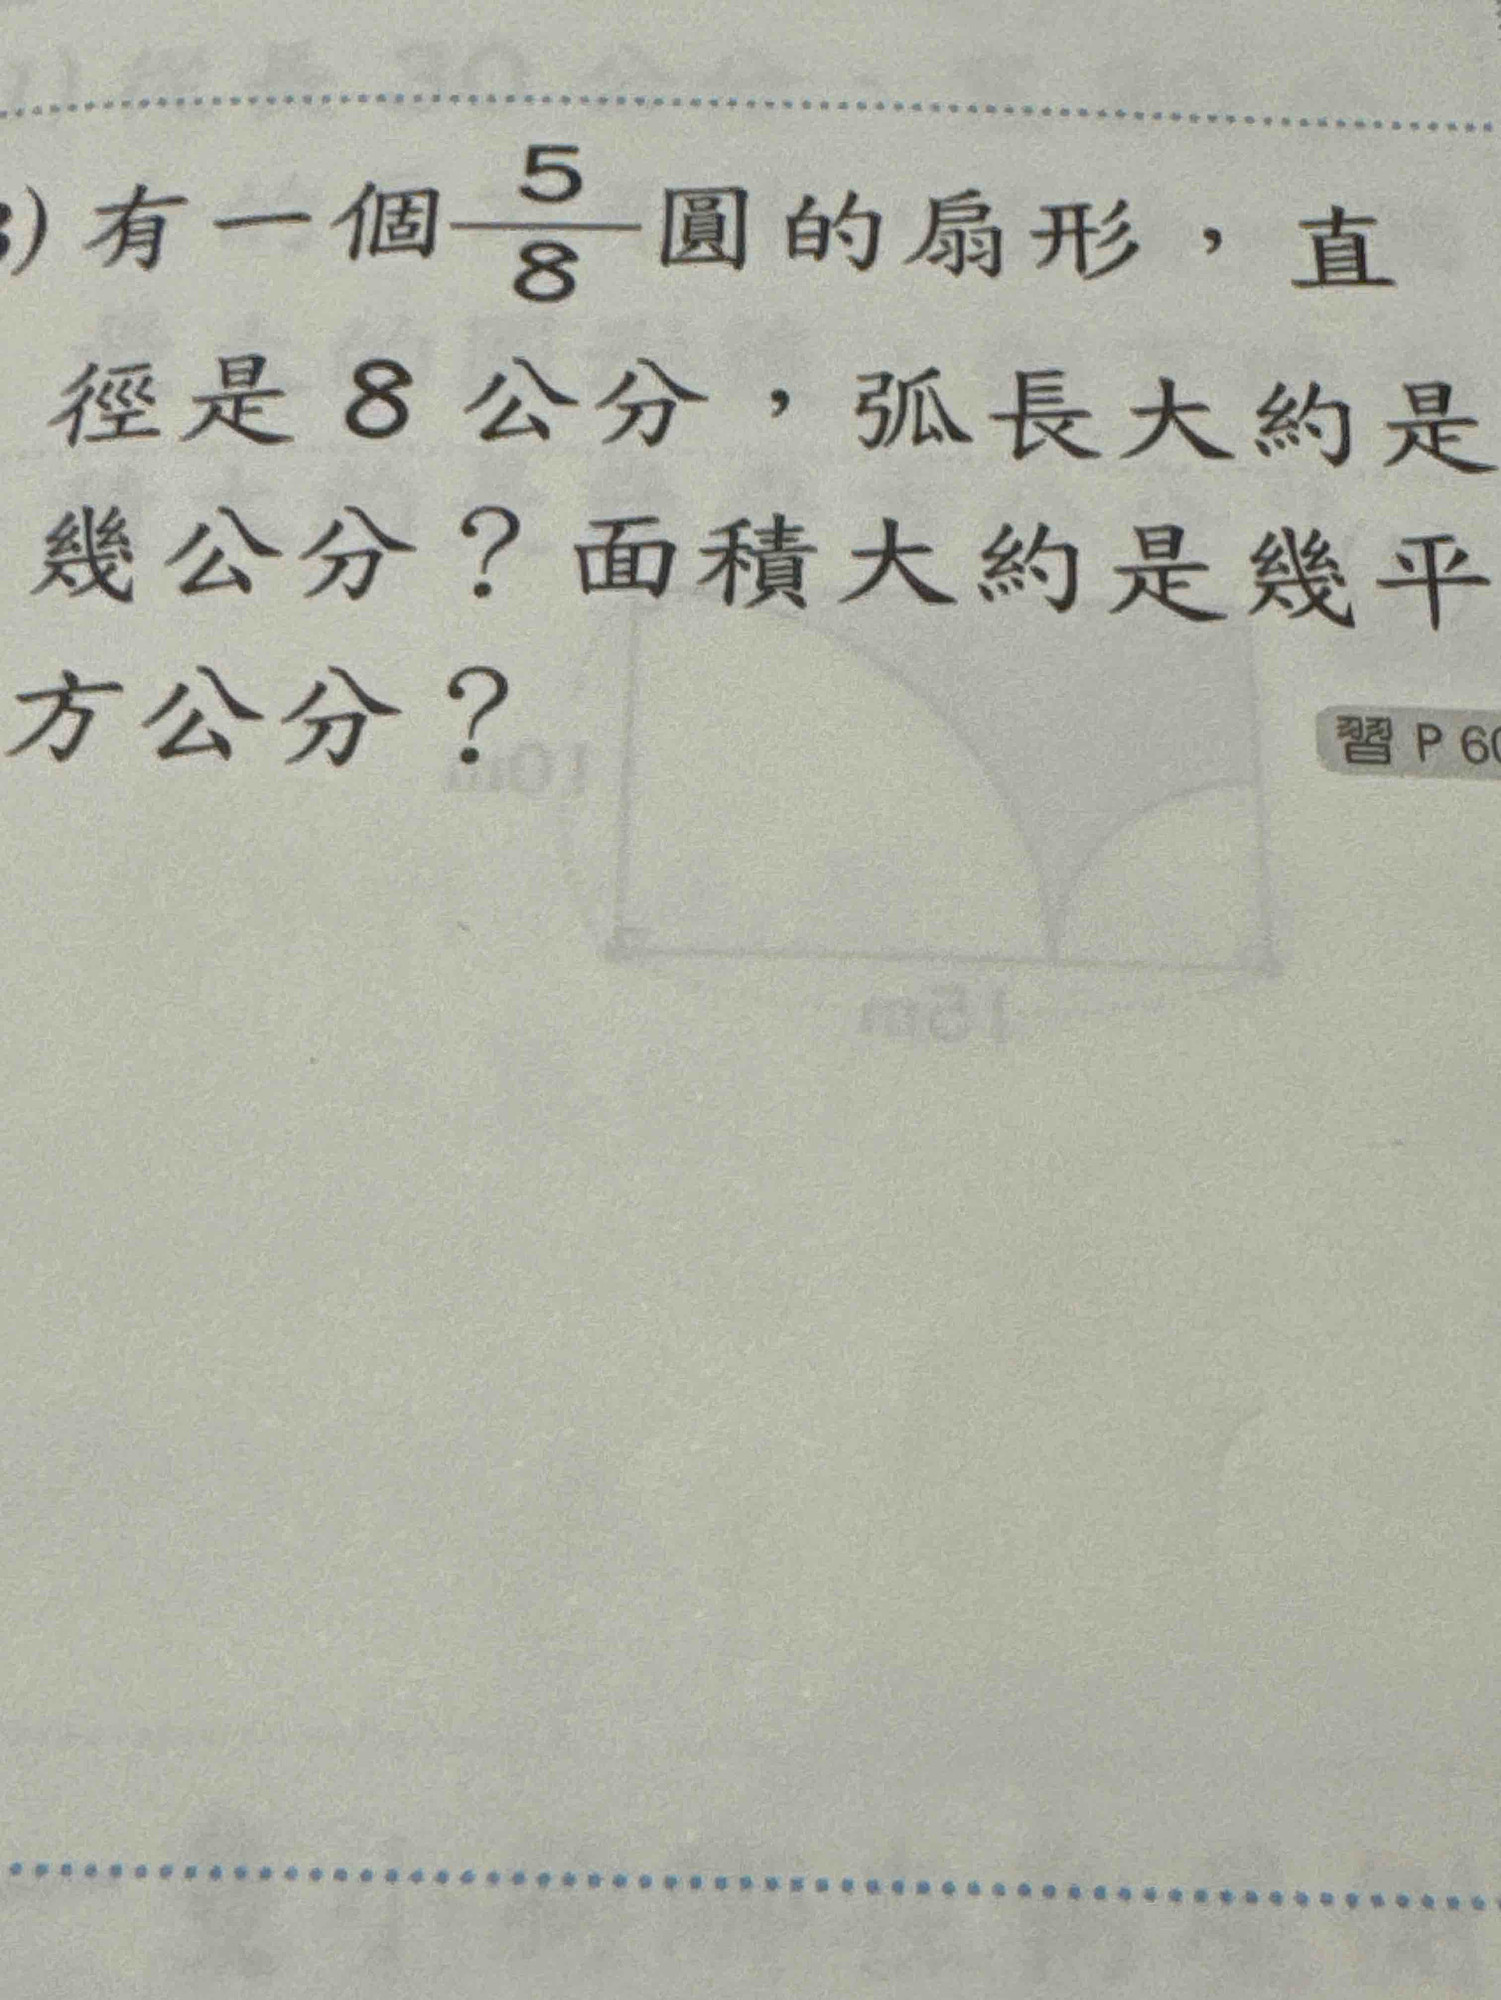 3) 有一個5/8圓的扇形，直
徑是8公分，弧長大約是
幾公分？面積大約是幾平
方公分？
習 P 60
10m
15m